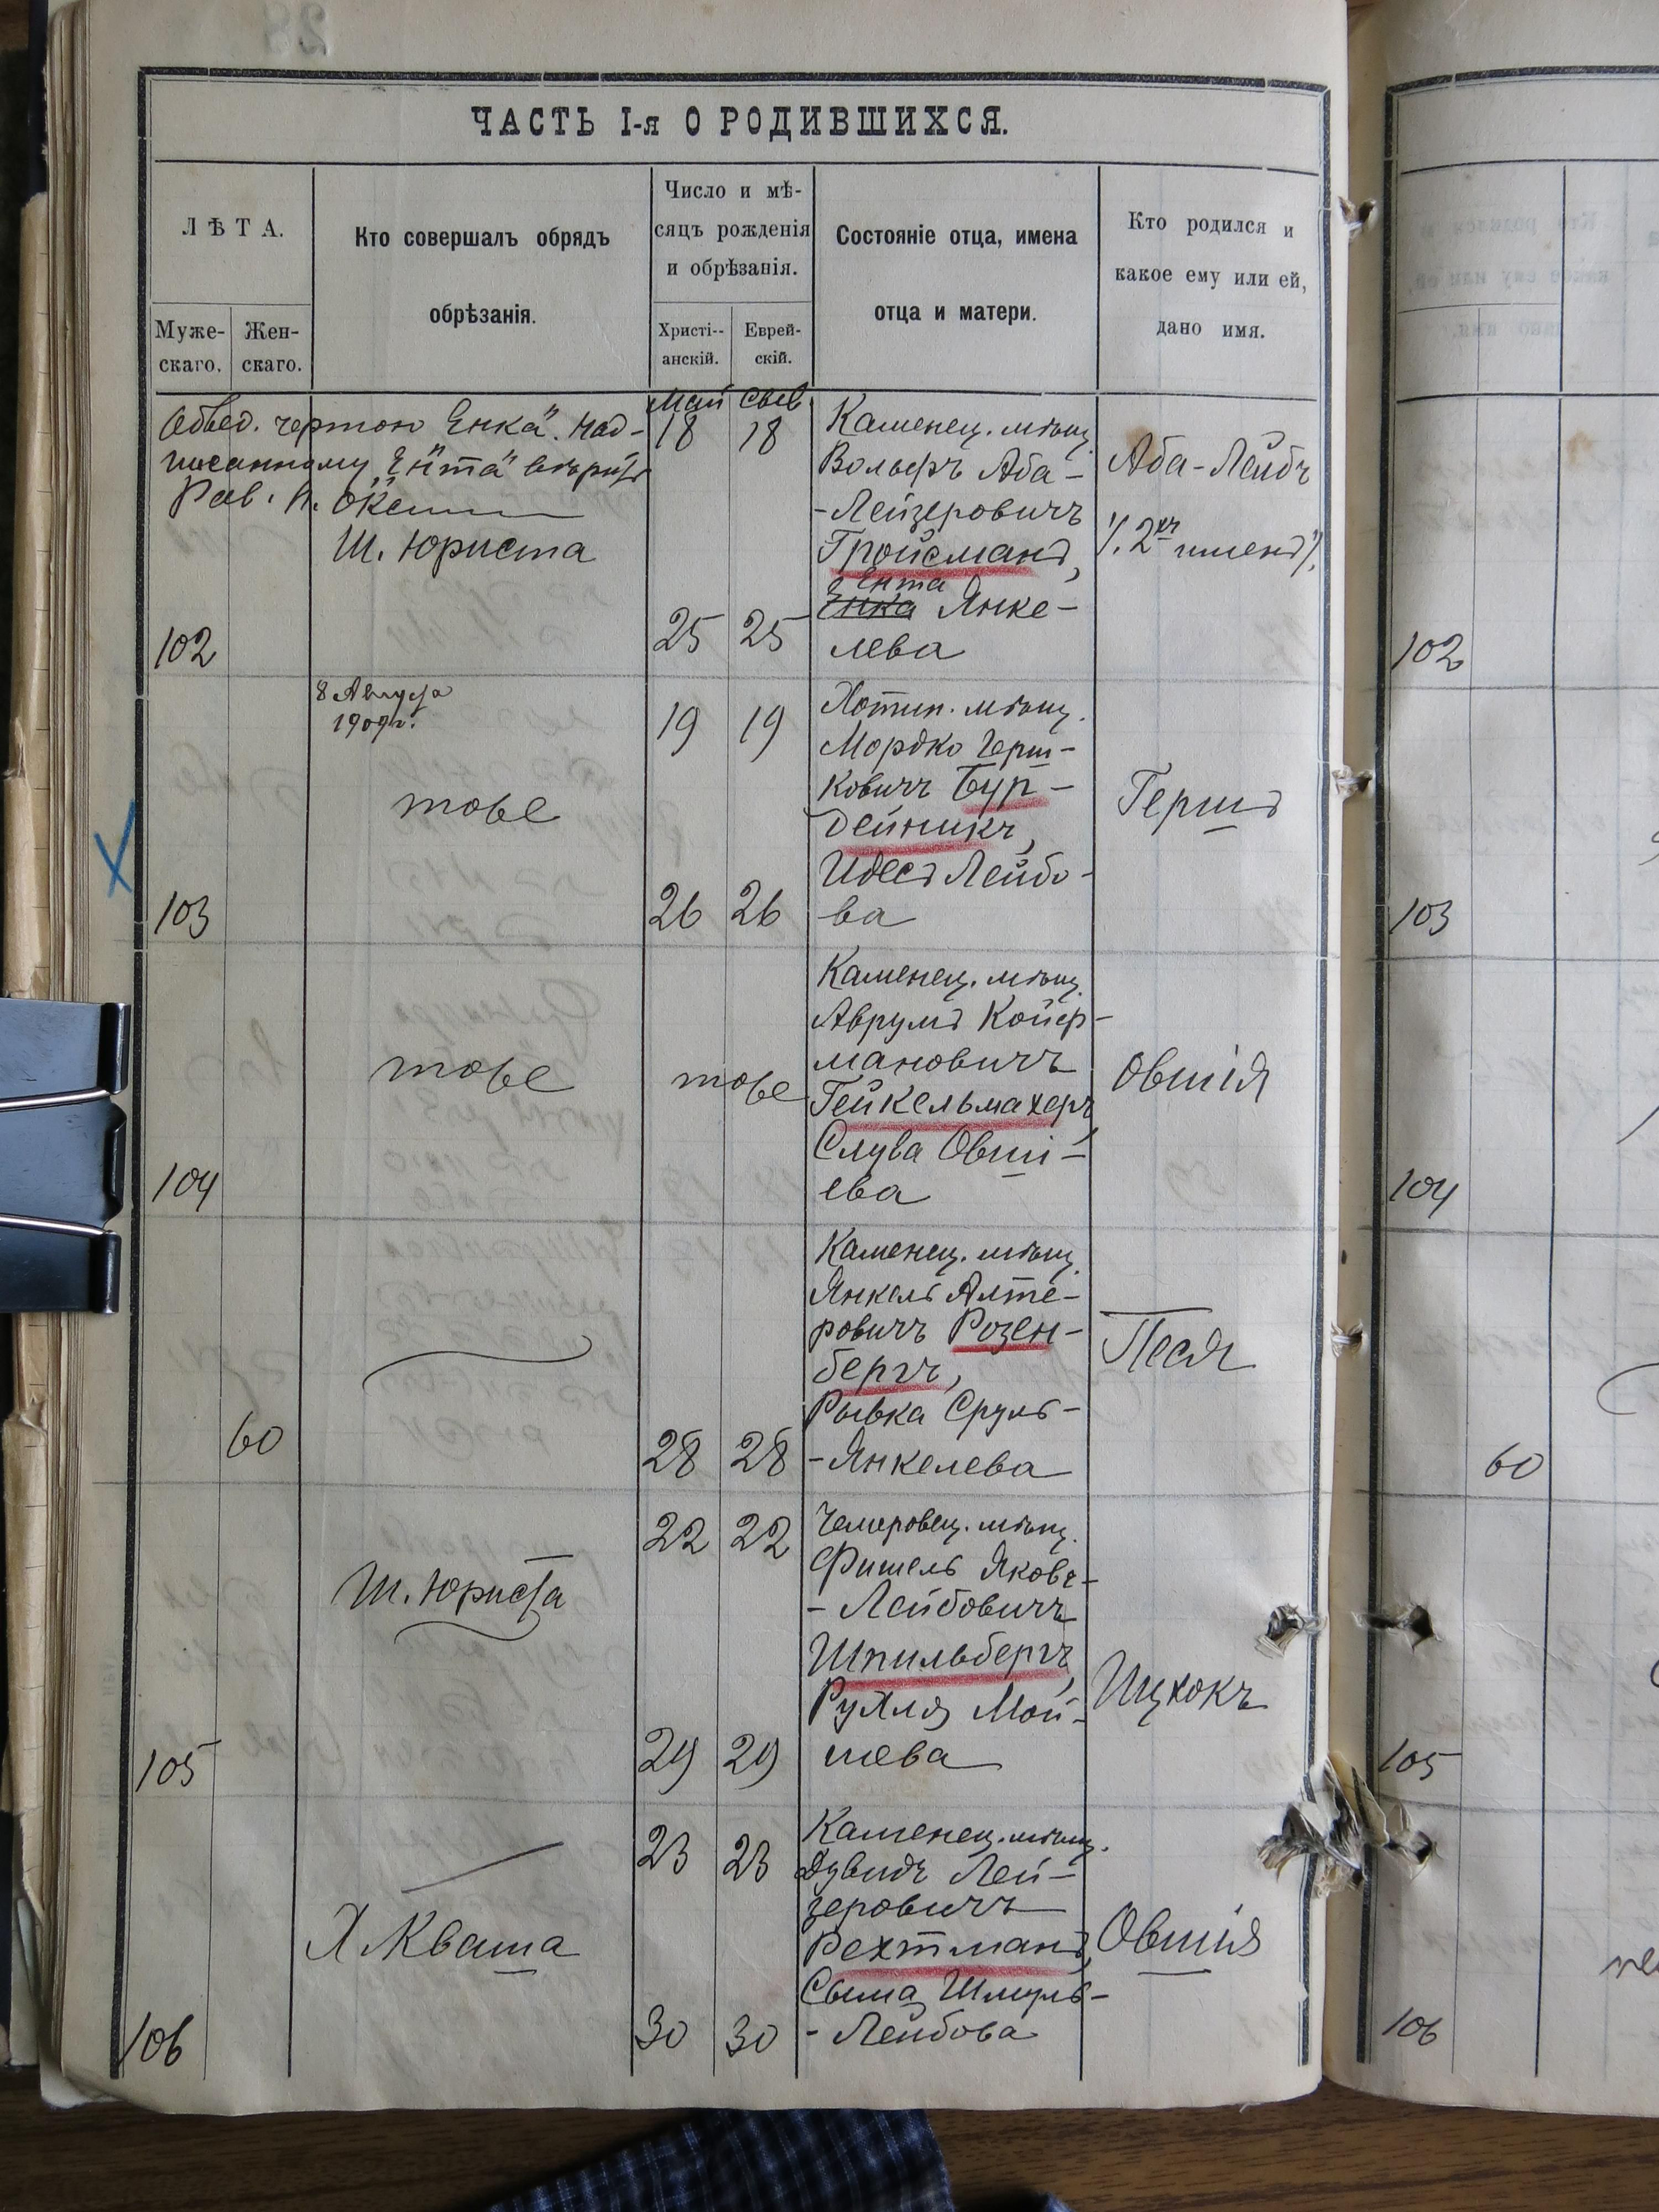 ЧАСТЬ I-я О РОДИВШИХСЯ.
ЛѢТА.
Муже-
скаго.
Жен-
скаго.
Кто совершалъ обрядъ
обрѣзанія.
Число и мѣ-
сяцъ рожденія
и обрѣзанія.
Христі--
анскій.
Еврей-
скій.
Состояніе отца, имена
отца и матери.
Кто родился и
какое ему или ей,
дано имя.
Обвед. чертою „Енка“. Над-
писанному „Ента“ вѣрить
Рав.
Ш. Юриста
102
Май
18 18
25 25
Каменец. мѣщ.
Вольфъ Аба-
-Лейзеровичъ
Гройсманъ,
Ента
Енка Янке-
лева
Аба-Лейбъ
/. 2хъ именъ/.
102
8 Августа
1909г.
тоже
103
19 19
26 26
Хотин. мѣщ.
Мордко Герш-
ковичъ Бур-
дейникъ,
Идесъ Лейбо-
ва
Гершъ
103
тоже
104
тоже
Каменец. мѣщ.
Аврумъ Койф-
мановичъ
Гейкельмахеръ,
Слува Овші-
ева
Овшія
104
60
28 28
Каменец. мѣщ.
Янкель Алте-
ровичъ Розен-
бергъ,
Рывка Сруль-
-Янкелева
Песя
60
Ш. Юриста
105
22 22
29 29
Чемеровец. мѣщ.
Фишель Яковъ-
-Лейбовичъ
Шпильбергъ,
Рухля Мой-
шева
Ицхокъ
105
Х. Кваша
106
23 23
30 30
Каменец. мѣщ.
Дувидъ Лей-
зеровичъ
Рехтманъ,
Сыма Шмуль-
-Лейбова
Овшія
106